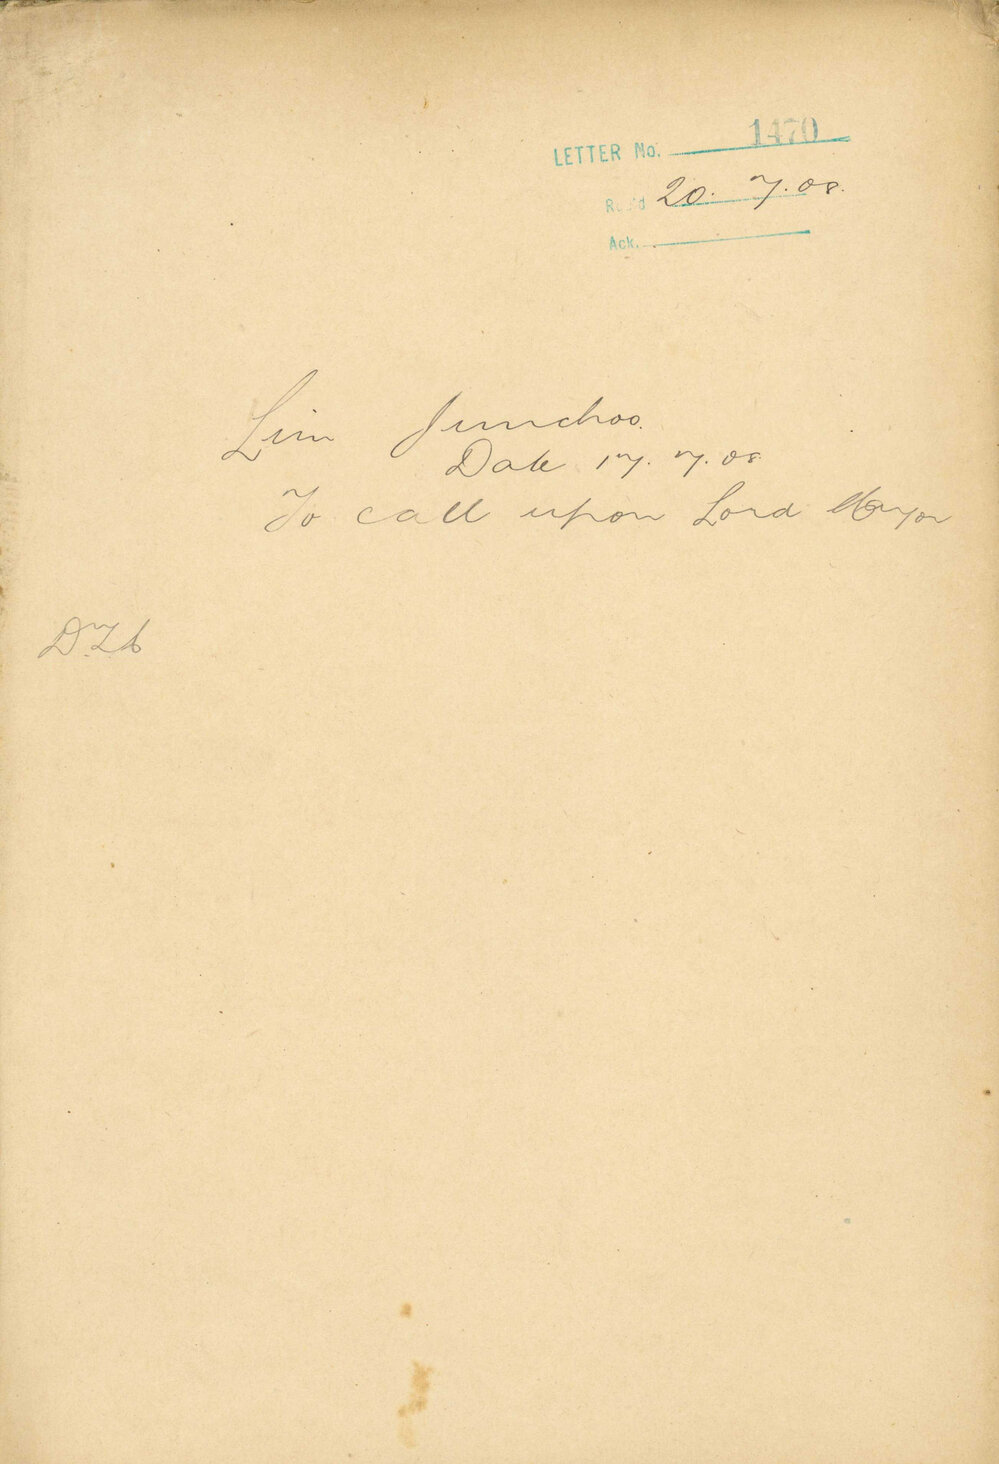 LETTER No. 1470
Rec'd 20. 7. 08.
Ack.
Lim Junchoo.
Date 17. 7. 08
To call upon Lord Mayor